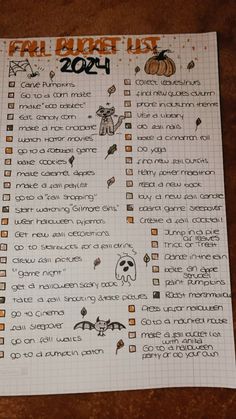 FALL BUCKET LIST
2024
Carve Pumpkins
Go to a corn maze
make "boo basket"
Eat candy corn
make a hot chocolate
watch Horror movies
go to a football game
bake cookies
make caramel apples
make a fall playlist
go to a "fall shopping"
Start watching "Gilmore Girls"
wear halloween pyjamas
Get new fall decorations
go to Starbucks for a fall drink
Draw fall pictures
"game night"
get a halloween scary book
take a fall shooting &take pictures
go to cinema
fall sleepover
go on fall walks
go to a pumpkin patch
collect leaves/nuts
find new quotes autumn
phone in autumn theme
visit a library
do fall nails
make a cinnamon roll
do yoga
find new fall outfits
Harry potter marathon
read a new book
buy a new fall candle
board game sleepover
create a fall cocktail
Jump in a pile
of leaves
Trick or Treat
Dance in the rain
make an apple
strudel
paint pumpkins
Roast marshmallows
Dress up for halloween
Go to a haunted house
make a fall bucket list
with
Go to a halloween
party or do your own